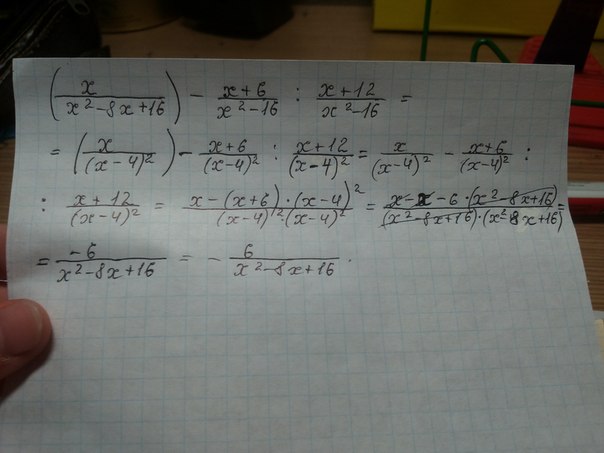 (x/(x²-8x+16)) - (x+6)/(x²-16) : (x+12)/(x²-16) =
= (x/(x-4)²) - (x+6)/(x-4)² : (x+12)/(x-4)² = x/(x-4)² - (x+6)/(x-4)² :
: (x+12)/(x-4)² = (x-(x+6)·(x-4)²)/((x-4)²·(x-4)²) = (x-x-6·(x²-8x+16))/((x²-8x+16)·(x²-8x+16)) =
= -6/(x²-8x+16) = - 6/(x²-8x+16).